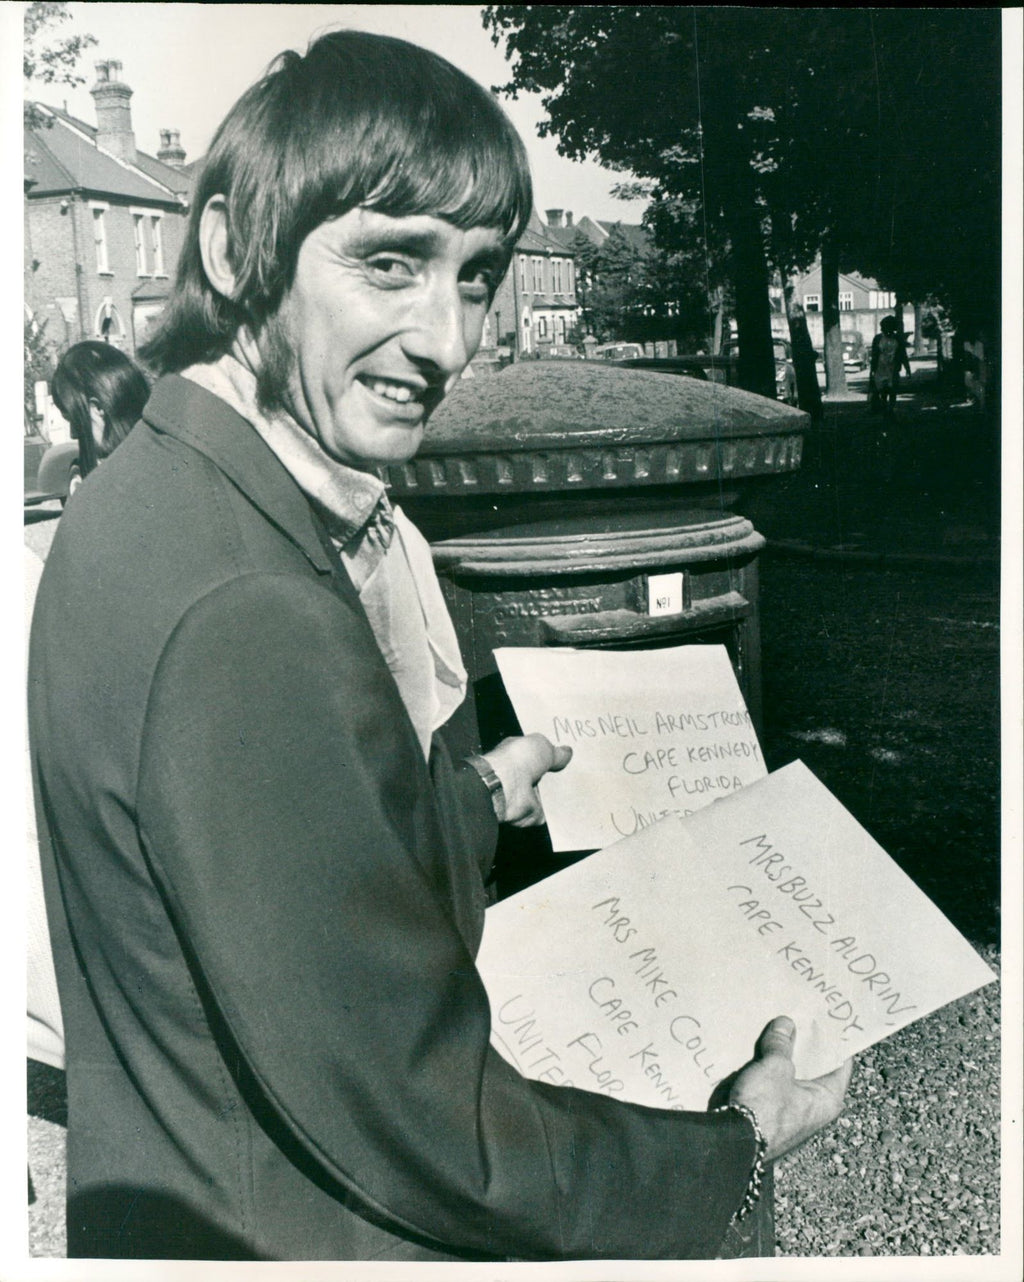 COLLECTION
Nº1
MRS NEIL ARMSTRON
CAPE KENNEDY
FLORIDA
UNITE
MRS BUZZ ALDRIN,
CAPE KENNEDY,
MRS MIKE COLLI
CAPE KENNE
FLOR
UNITE